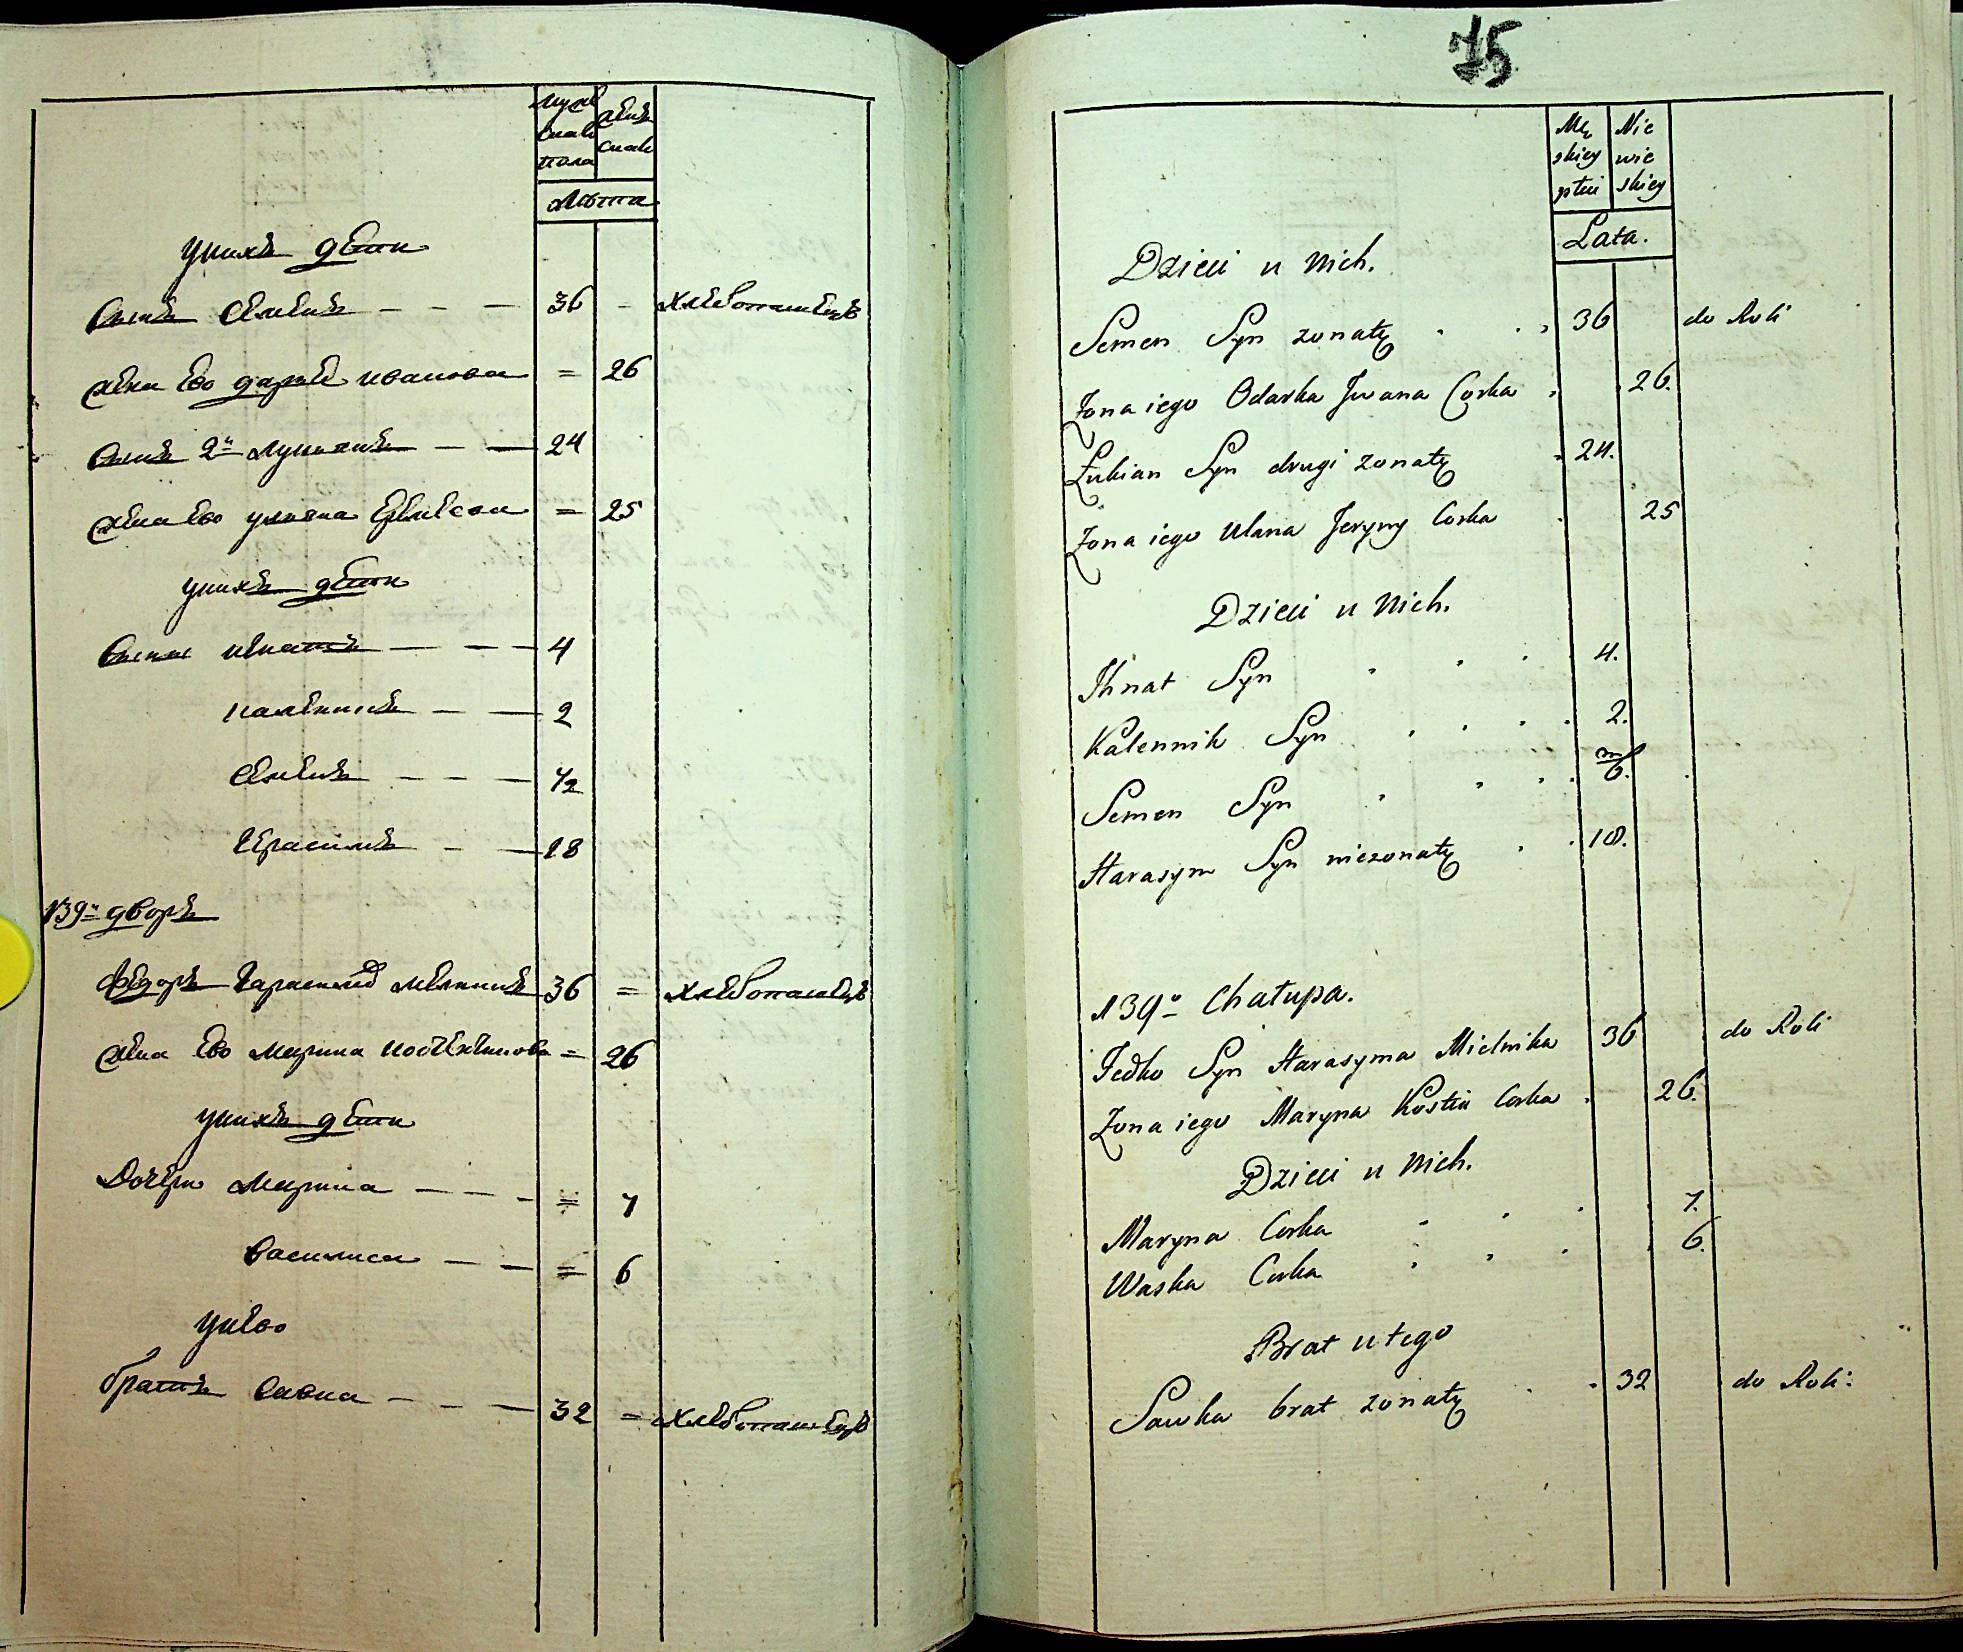 мужеска пола
женска
Лѣта
у нихъ дѣти
Сынъ Семенъ 36 - хлебопашецъ
жена ево дарья иванова = 26
Сынъ 2й лукьянъ 24
жена ево ульяна = 25
у нихъ дѣти
Сыны игнатъ 4
калениикъ 2
Семенъ 1/2
Герасимъ 18
139й дворъ
Федоръ Гарасимовъ мелникъ 36 = хлебопашецъ
жена ево марина = 26
у нихъ дѣти
Дочери марина = 7
василиса = 6
у него
братъ савка 32 = хлебопашецъ
75
Męskiey płci
Niewieskiey
Lata.
Dzieci u Nich.
Semen Syn zonaty 36 do Roli
Zona iego Odarka Jwana Corka 26.
Łukian Syn drugi zonaty 24.
Zona iego Ulana Jeryny Corka 25
Dzieci u Nich.
Ihnat Syn 4.
Kalennik Syn 2.
Semen Syn m/6.
Harasym Syn niezonaty 18.
139o Chałupa.
Fedko Syn Harasyma Mielnika 36 do Roli
Zona iego Maryna Kostia Corka 26.
Dzieci u Nich.
Maryna Corka 7.
Waska Corka 6.
Brat u tego
Sawka brat zonaty 32 do Roli: